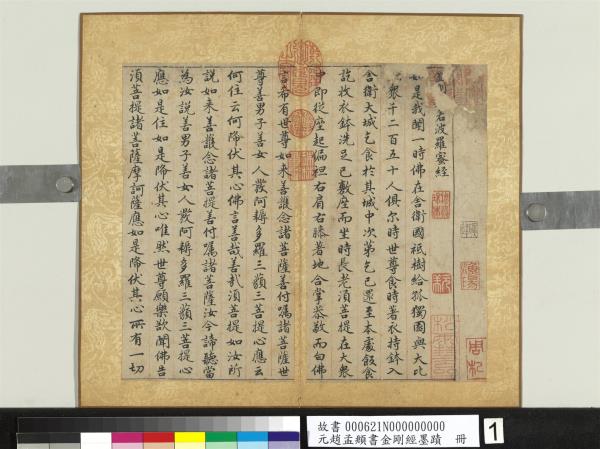 若波羅蜜經
如是我聞一時佛在舍衛國祇樹給孤獨園與大比
眾千二百五十人俱尔時世尊食時著衣持鉢入
舍衛大城乞食於其城中次第乞已還至本處飯食
訖收衣鉢洗足已敷座而坐時長老須菩提在大衆
中即從座起偏袒右肩右膝著地合掌恭敬而白佛
言希有世尊如来善護念諸菩薩善付囑諸菩薩世
尊善男子善女人發阿耨多羅三藐三菩提心應云
何住云何降伏其心佛言善哉善哉須菩提如汝所
說如来善護念諸菩提善付囑諸菩薩汝今諦聽當
為汝說善男子善女人發阿耨多羅三藐三菩提心
應如是住如是降伏其心唯然世尊願樂欲聞佛告
須菩提諸菩薩摩訶薩應如是降伏其心所有一切
故書 000621N000000000
元趙孟頫書金剛經墨蹟 冊
1